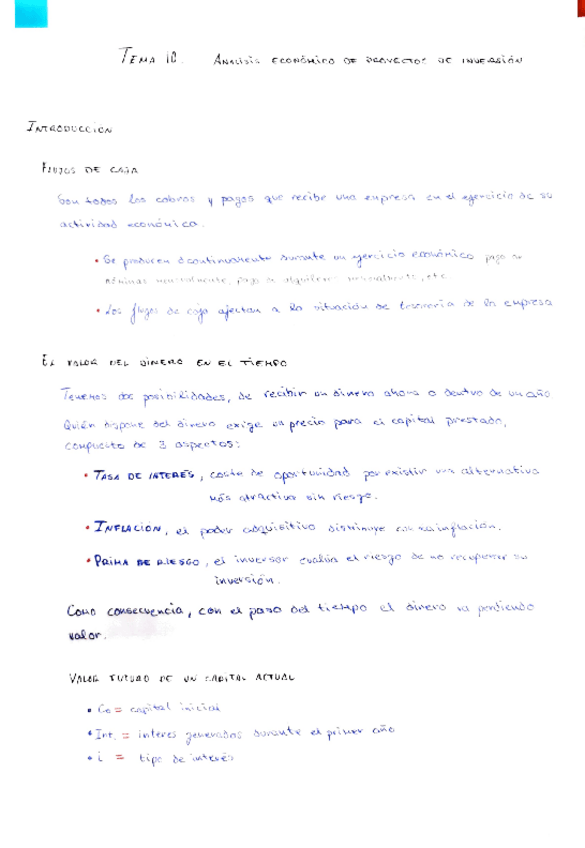 TEMA 10. ANALISIS ECONÓMICO DE PROYECTOS DE INVERSIÓN
INTRODUCCION
FLUJOS DE CAJA
Son todos los cobros y pagos que recibe una empresa en el ejercicio de su
actividad económica.
• Se producen continuamente durante un ejercicio económico pago de
nóminas mensualmente, pago de alquileres mensualmente, etc.
• Los flujos de caja afectan a la situación de tesorería de la empresa
EL VALOR DEL DINERO EN EL TIEMPO
Tenemos dos posibilidades, de recibir un dinero ahora o dentro de un año
Quién dispone del dinero exige un precio para el capital prestado,
compuesto de 3 aspectos:
• TASA DE INTERÉS, coste de oportunidad por existir una alternativa
más atractiva sin riesgo.
• INFLACIÓN, el poder adquisitivo disminuye con la inflación.
• PRIMA DE RIESGO, el inversor evalúa el riesgo de no recuperar su
inversión.
Como consecuencia, con el paso del tiempo el dinero va perdiendo
valor.
VALOR FUTURO DE UN CAPITAL ACTUAL
• Co = capital inicial
• Int. = interes generados durante el primer año
• i = tipo de interés